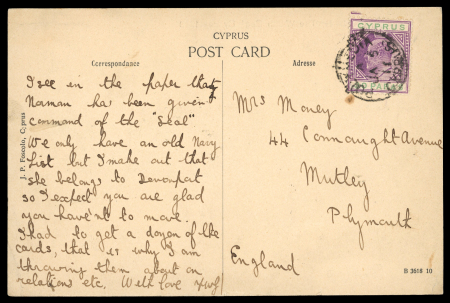 CYPRUS
POST CARD
Correspondance
Adresse
CYPRUS
I see in the paper that
Naman has been given
command of the "Seal"
We only have an old Navy
List but I make out that
she belongs to Devonport
so I expect you are glad
you have'nt to move.
I had to get a dozen of the
cards, that is why I am
throwing them about on
relations etc. With love
J. P. Foscolo, Cyprus
Mrs Money
44 Connaught Avenue
Mutley
Plymouth
England
B 3618 10